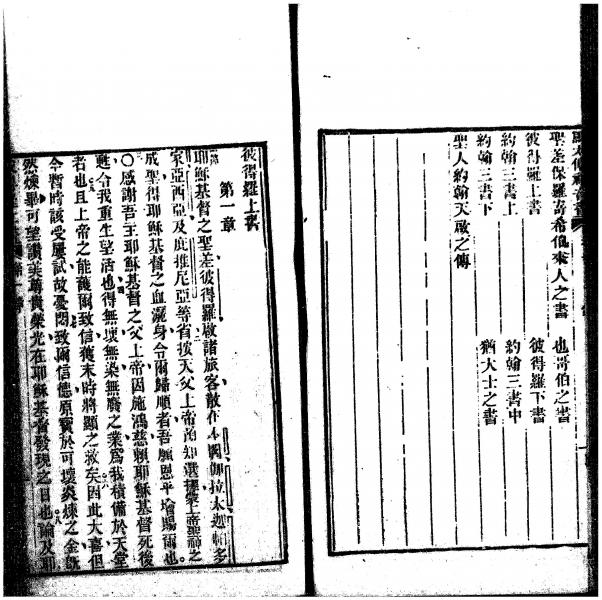 聖差保羅寄希伯來人之書 也哥伯之書
彼得羅上書 彼得羅下書
約翰三書上 約翰三書中
約翰三書下 猶大士之書
聖人約翰天啟之傳
彼得羅上書
第一章
耶穌基督之聖差彼得羅啟諸旅客散在本閙伽拉太迦帕多
家亞西亞及庇推尼亞等省按天父上帝預知選擇蒙上帝聖神之
成聖得耶穌基督之血灑身令爾歸順者吾願恩平增賜爾也。
〇感謝吾主耶穌基督之父上帝因施鴻慈賴耶穌基督死後
甦令我重生望活也得無壞無染無廢之業為我積備於天堂
者也且上帝之能護爾致信獲末時將顯之救矣因此大喜但
今暫時該受屢試故憂悶致爾信德原寶於可壞炎煉之金旣
然煉畢可望讚美尊貴榮光在耶穌基督發現之日也論及耶